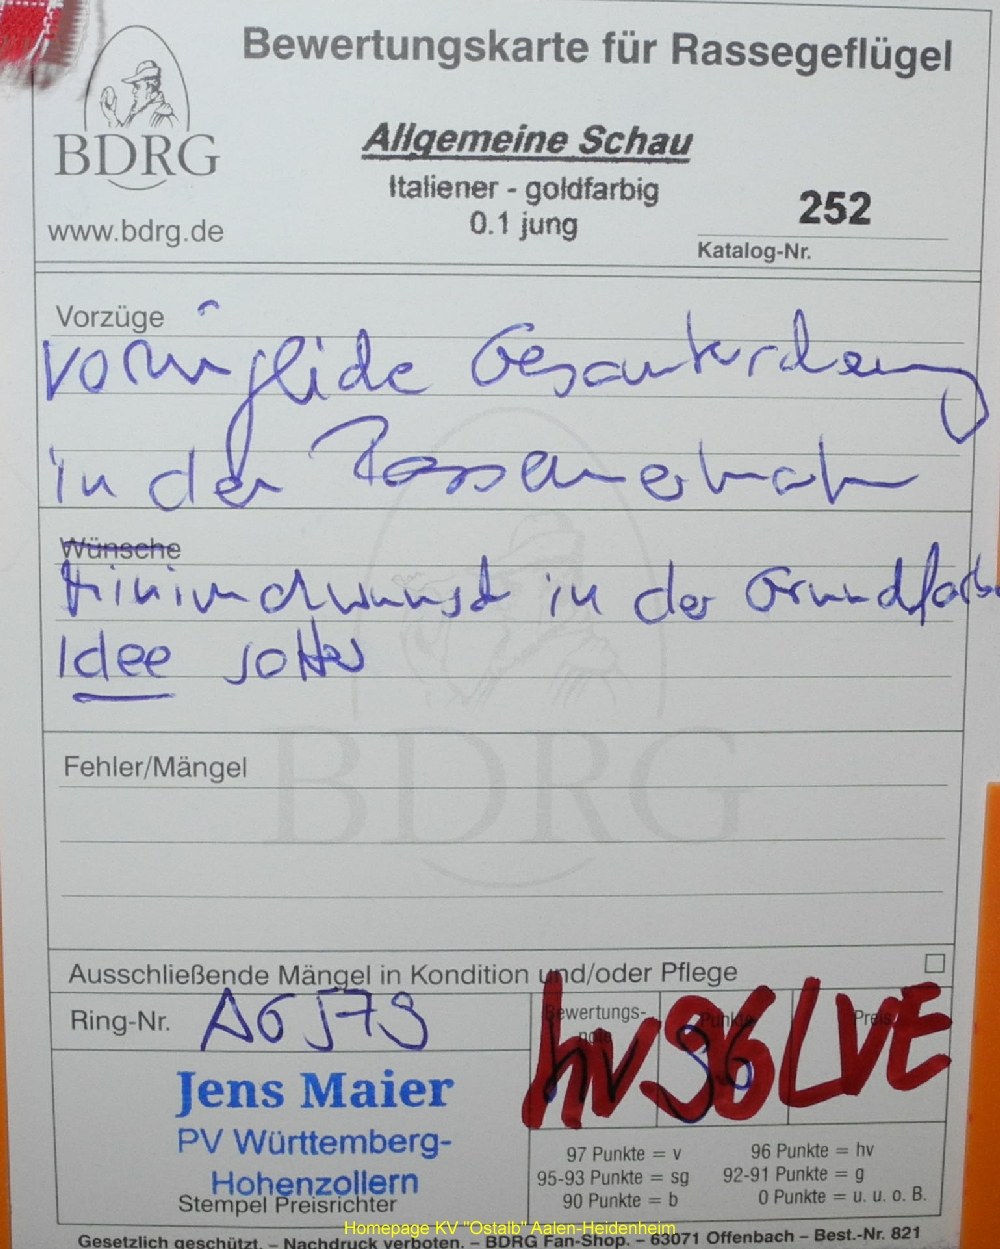 Bewertungskarte für Rassegeflügel
BDRG
www.bdrg.de
Allgemeine Schau
Italiener - goldfarbig
0.1 jung
252
Katalog-Nr.
Vorzüge
vorzügliche Gesamterscheinung
in der
Wünsche
Minimalwunsch in der Grundfarbe
Idee satter
BDRG
Fehler/Mängel
Ausschließende Mängel in Kondition und/oder Pflege
Ring-Nr.
Bewertungs-
note
Punkte
Preis
hv 96 LVE
96
Jens Maier
PV Württemberg-
Hohenzollern
Stempel Preisrichter
97 Punkte = v 96 Punkte = hv
95-93 Punkte = sg 92-91 Punkte = g
90 Punkte = b 0 Punkte = u. u. o. B.
Homepage KV "Ostalb" Aalen-Heidenheim
Gesetzlich geschützt. – Nachdruck verboten. – BDRG Fan-Shop. – 63071 Offenbach – Best.-Nr. 821